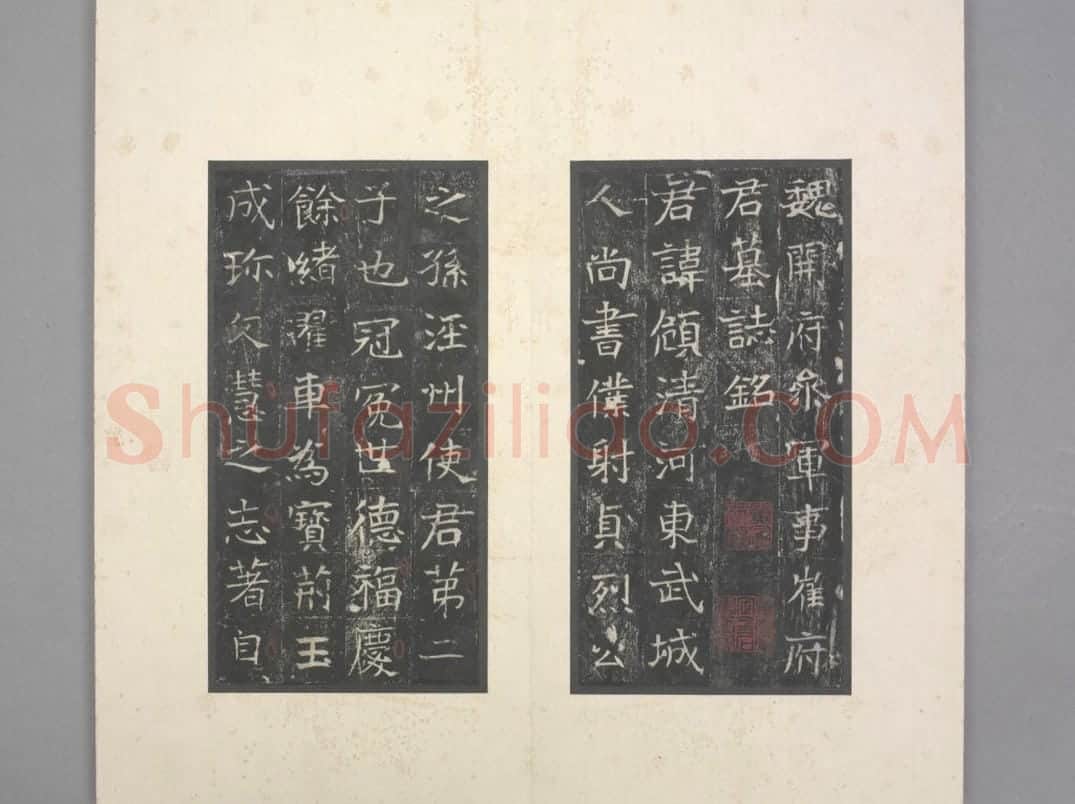 魏開府叅軍事崔府
君墓誌銘
君諱頠清河東武城
人尚書僕射貞烈公
之孫涇州使君苐二
子也冠冕世德福慶
餘緒濯車為寶荊玉
成珎久慧之志著自
Shufaziliao.COM